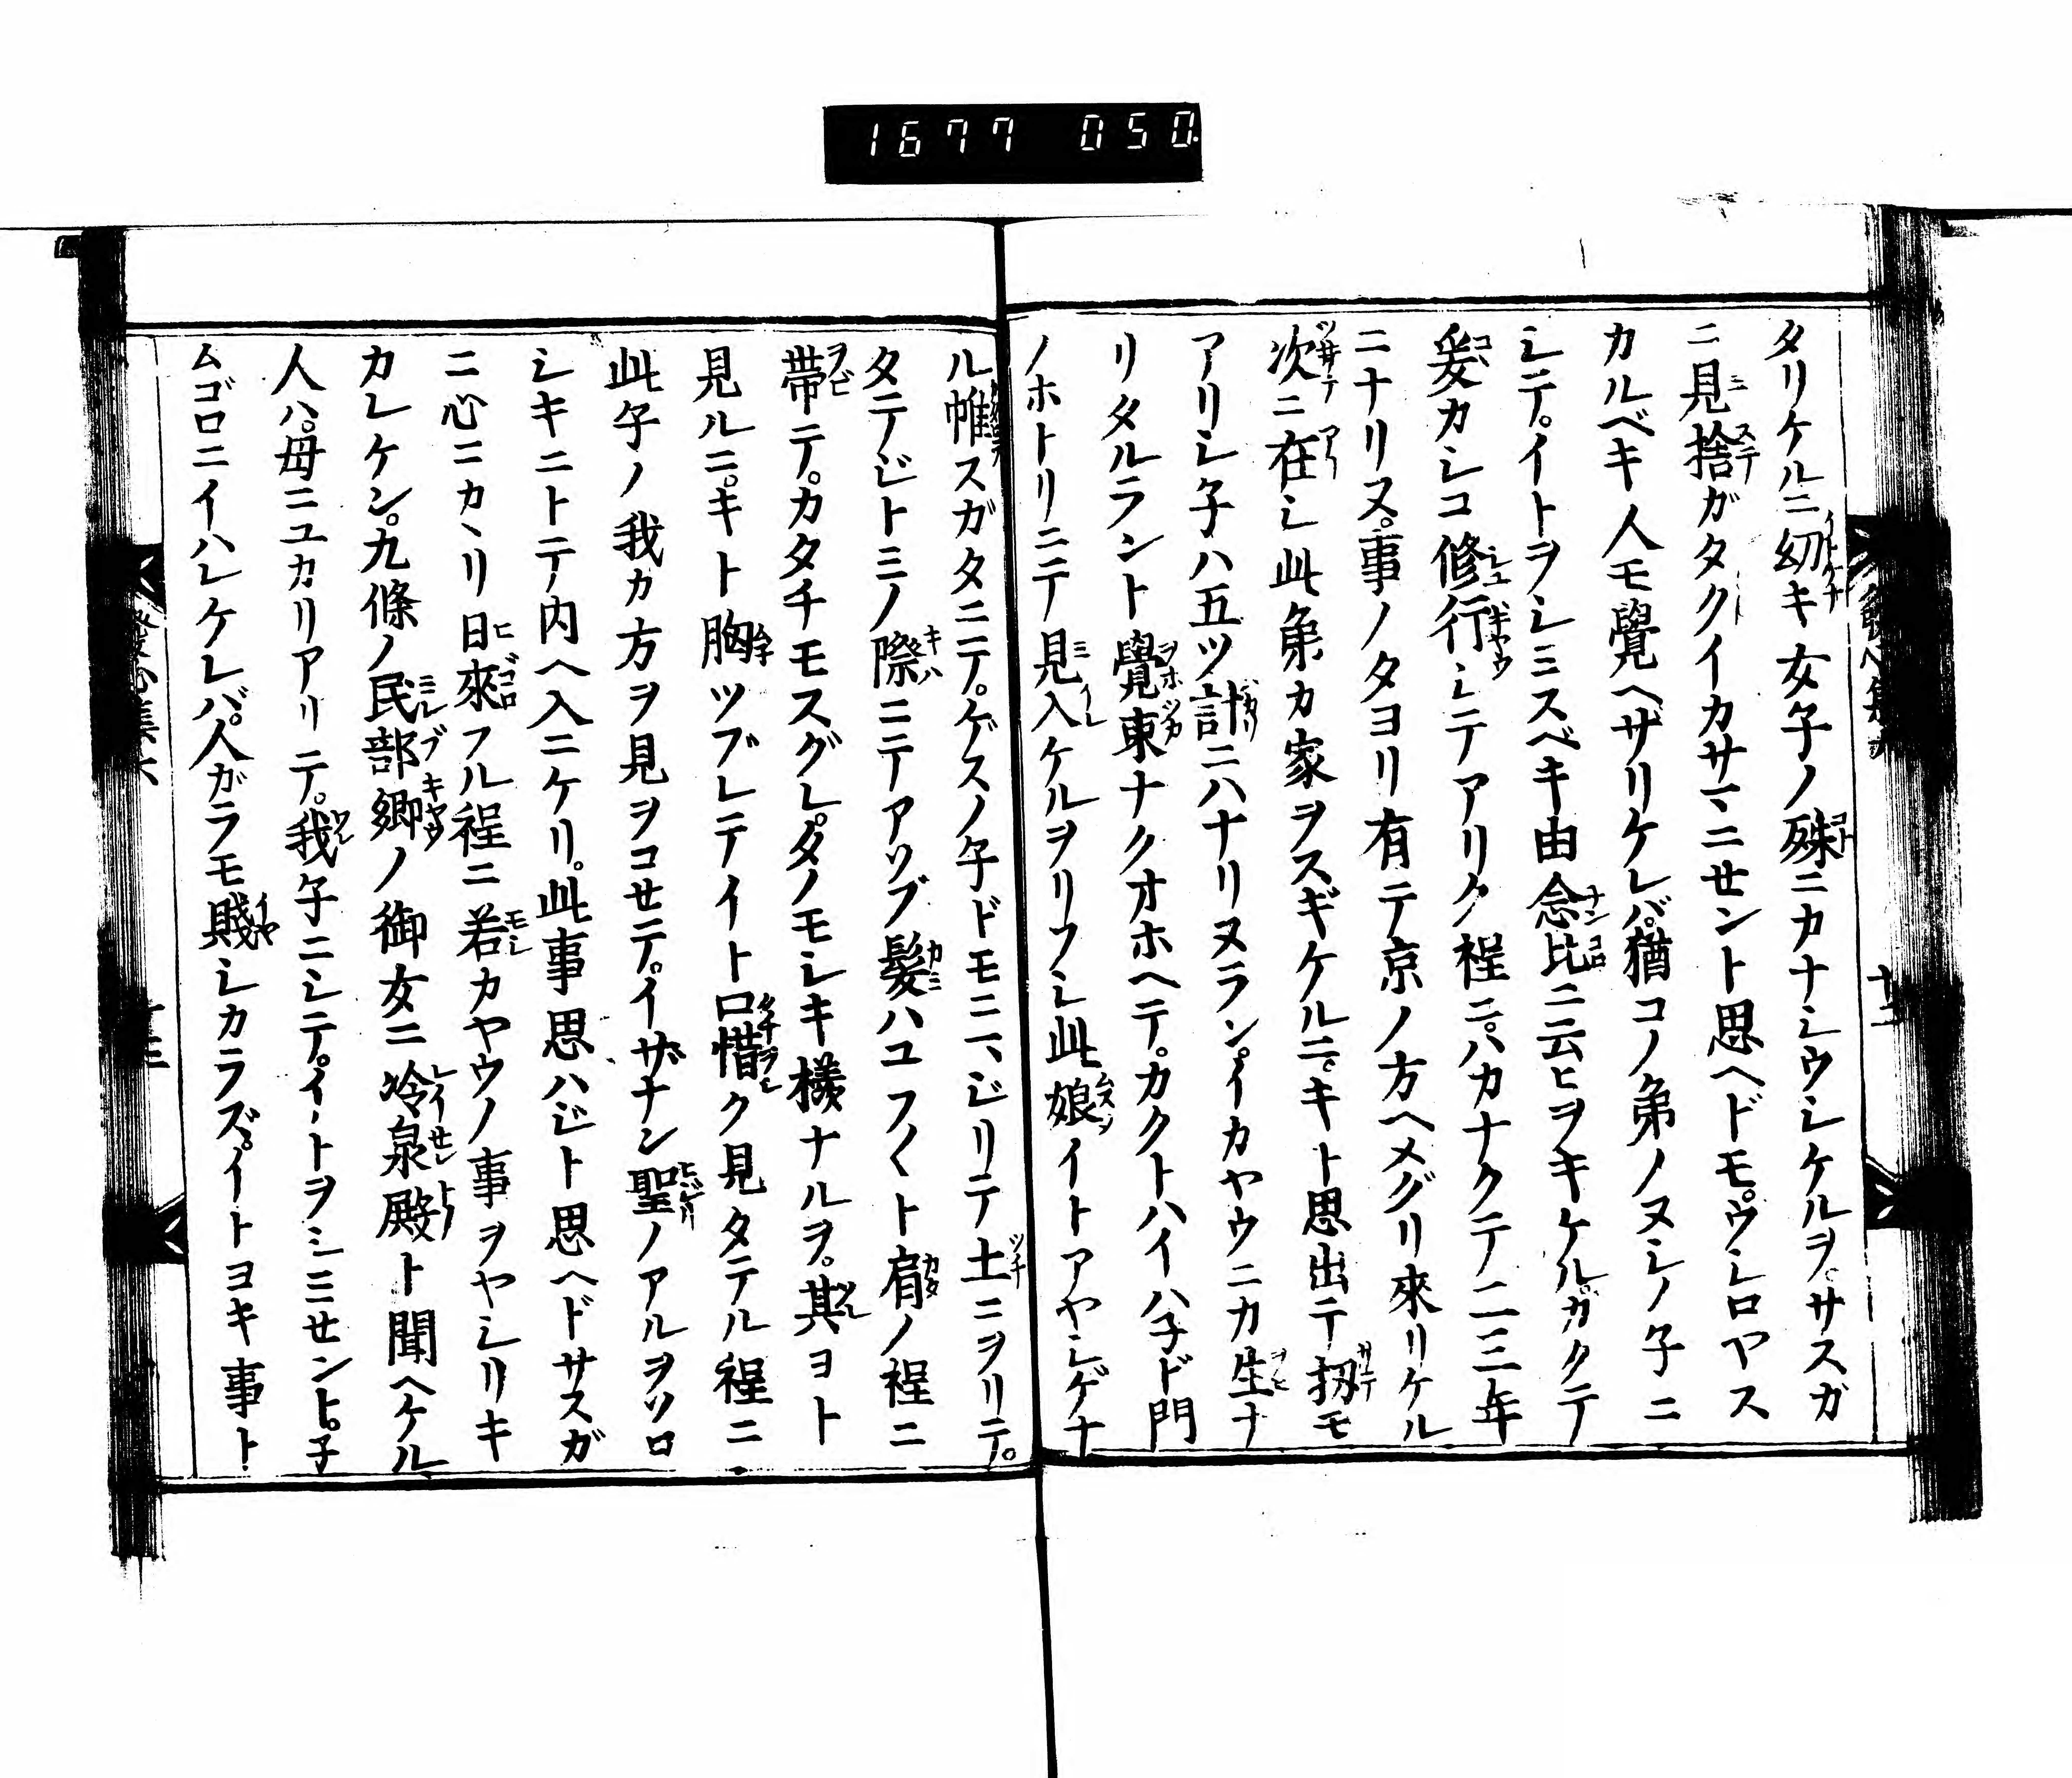 1677 050
タリケルニ幼キ女子ノ殊ニカナシウシケルヲ。サスガ
ニ見捨ガタクイカサマニセント思ヘドモ。ウシロヤス
カルベキ人モ覺ヘザリケレバ。猶コノ弟ノヌシノ子ニ
シテ。イトヲシミスベキ由念比ニ云ヒヲキケル。カクテ
爰カシコ修行シテアリク程ニ。ハカナクテ二三年
ニナリヌ。事ノタヨリ有テ京ノ方ヘメグリ來リケル
次ニ在シ此弟カ家ヲスギケルニ。キト思出テ扨モ
アリシ子ハ五ツ計ニハナリヌラン。イカヤウニカ生ナ
リタルラント覺束ナクオホヘテ。カクトハイハ子ド門
ノホトリニテ見入ケルヲリフシ此娘イトアヤシゲナ
ル帷スガタニテ。ゲスノ子ドモニマジリテ土ニヲリテ。
タテジトミノ際ニテアソブ髪ハユフ〱ト肩ノ程ニ
帯テ。カタチモスグレ。タノモシキ樣ナルヲ。其ヨト
見ルニ。キト胸ツブレテイト口惜ク見タテル程ニ
此子ノ我カ方ヲ見ヲコセテ。イザナン聖ノアルヲソロ
シキニトテ内ヘ入ニケリ。此事思ハジト思ヘドサスガ
ニ心ニカヽリ日來フル程ニ若カヤウノ事ヲヤシリキ
カレケン。九條ノ民部卿ノ御女ニ冷泉殿ト聞ヘケル
人ハ。母ニユカリアリテ。我子ニシテ。イトヲシミセント。子
ムゴロニイハレケレバ。人ガラモ賤シカラズ。イトヨキ事ト
發心集六